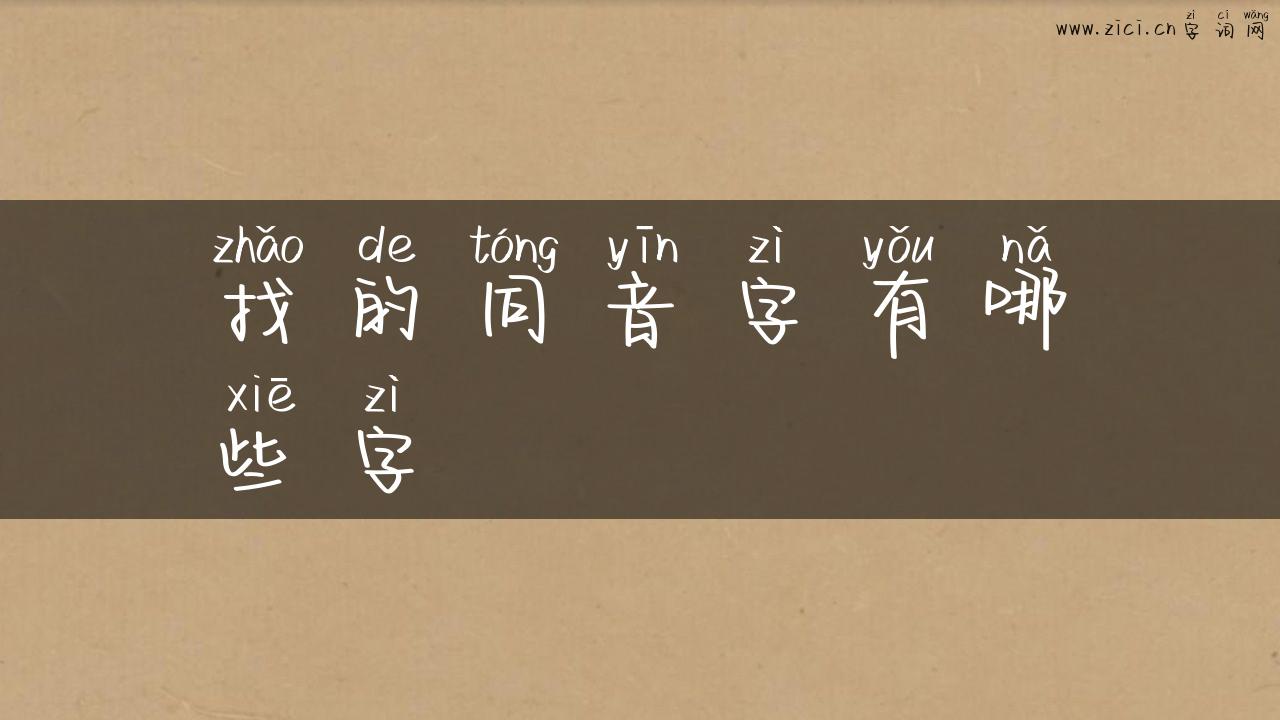 zì cí wǎng
www.zici.cn 字词网
zhǎo de tóng yīn zì yǒu nǎ
找的同音字有哪
xiē zì
些字